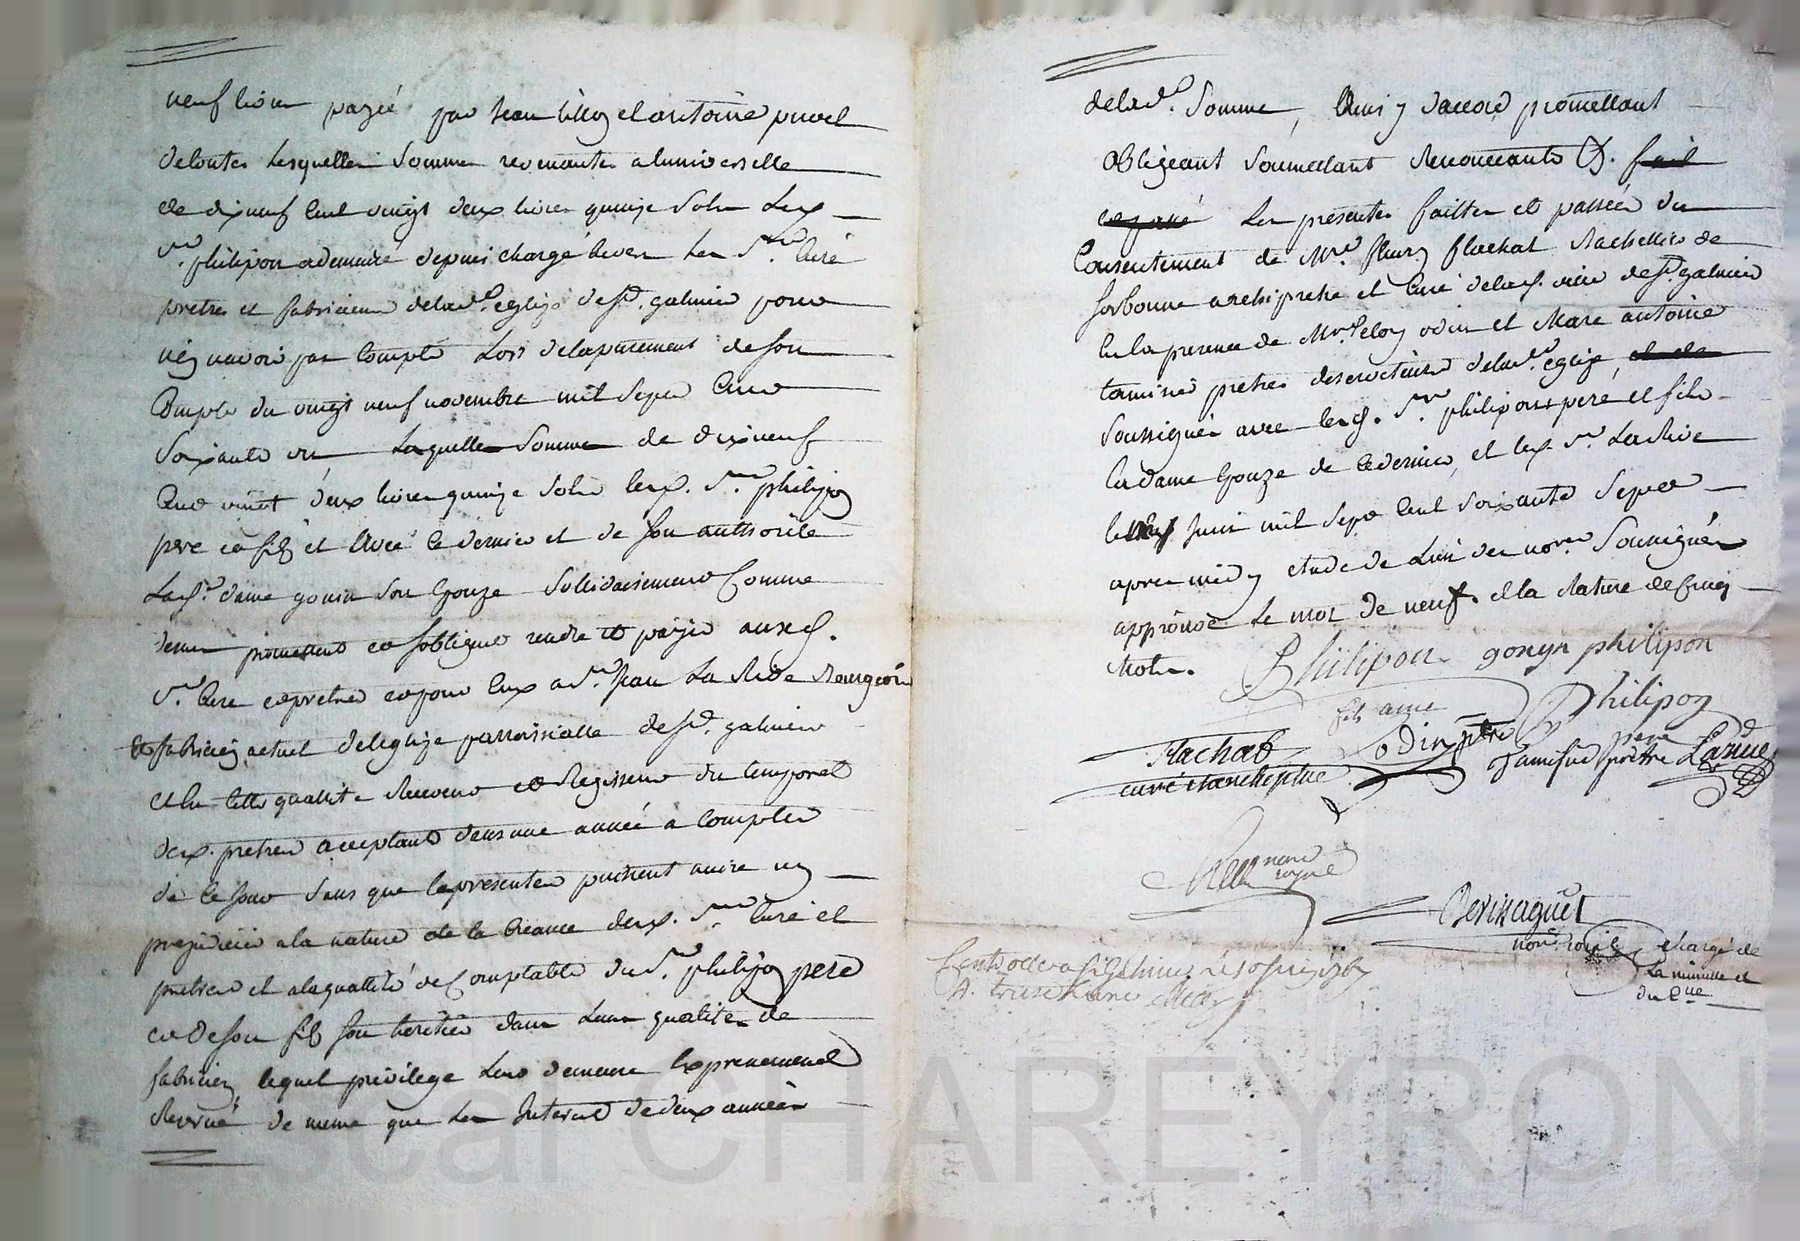 neuf livres payée par Jean Villoy et antoine puvel
de toutes lesquelles sommes revenantes a luniverselle
de dixneuf cent vingt deux livres quinze sols lesd.
Sr. philipon a demeuré depuis chargé envers les Sr. Curé
pretres et fabriciens de lad. eglize de St. galmier pour
n'en avoir pas compté Lors de la purement de son
Compte du vingt neuf novembre mil Sept Cent
Soixante un Laquelle Somme de dixneuf
Cent vingt deux livres quinze sols lesd. Srs. philipon
pere et fils et avec ce dernier et de son authorité
Lad. dame gonin son Epouze Sollidairement Comme
dessus promettent et s'obligent rendre et payer auxd.
Srs. Curé et pretres et pour Eux a Sr. Jean La Rive Bourgeois
et fabricien actuel de leglize parroissialle de St. galmier
et En Cette quallité Receveur et Regisseur du temporel
desd. pretres acceptant dans une année a Compter
de ce jour Sans que les presentes puissent nuire ny
prejudicier a la nature de la Creance desd. Srs. Curé et
pretres et a la quallité de Comptable du Sr. philipon pere
et de son fils son heritier dans Leur qualité de
fabricien lequel privilege Leur demeure Expressement
Reservé de meme que Les Interest de deux années
de lad. Somme, Ainsy d'accord promettant
obligeant Soumettant Renonceants &. fait
et passé Les presentes faittes et passées du
Consentement de Mre. fleury flachat Bachellier de
Sorbonne archipretre et Curé de lad. ville de St. galmier
En la presence de Mre. eloy odin et Marc antoine
tamisier pretres deserviteurs de lad. eglize, et de
Soussignés avec lesd. Srs. philipon pere et fils
la dame Epouze de ce dernier, et led. Sr. La Rive
le neuf Juin mil Sept Cent Soixante Sept
apres midy etude de L'un des nores. Soussignés
approuvé Le mot de neuf. et la Rature de Cinq
Mots.
Philipon gonyn philipon
fils ainé Philipon
pere
Flachat Odin ptre tamisier prêtre Larive
curé et archiprtre
nore royal
Berixaguet
nore. royal chargé de
La minutte et
du C.lle